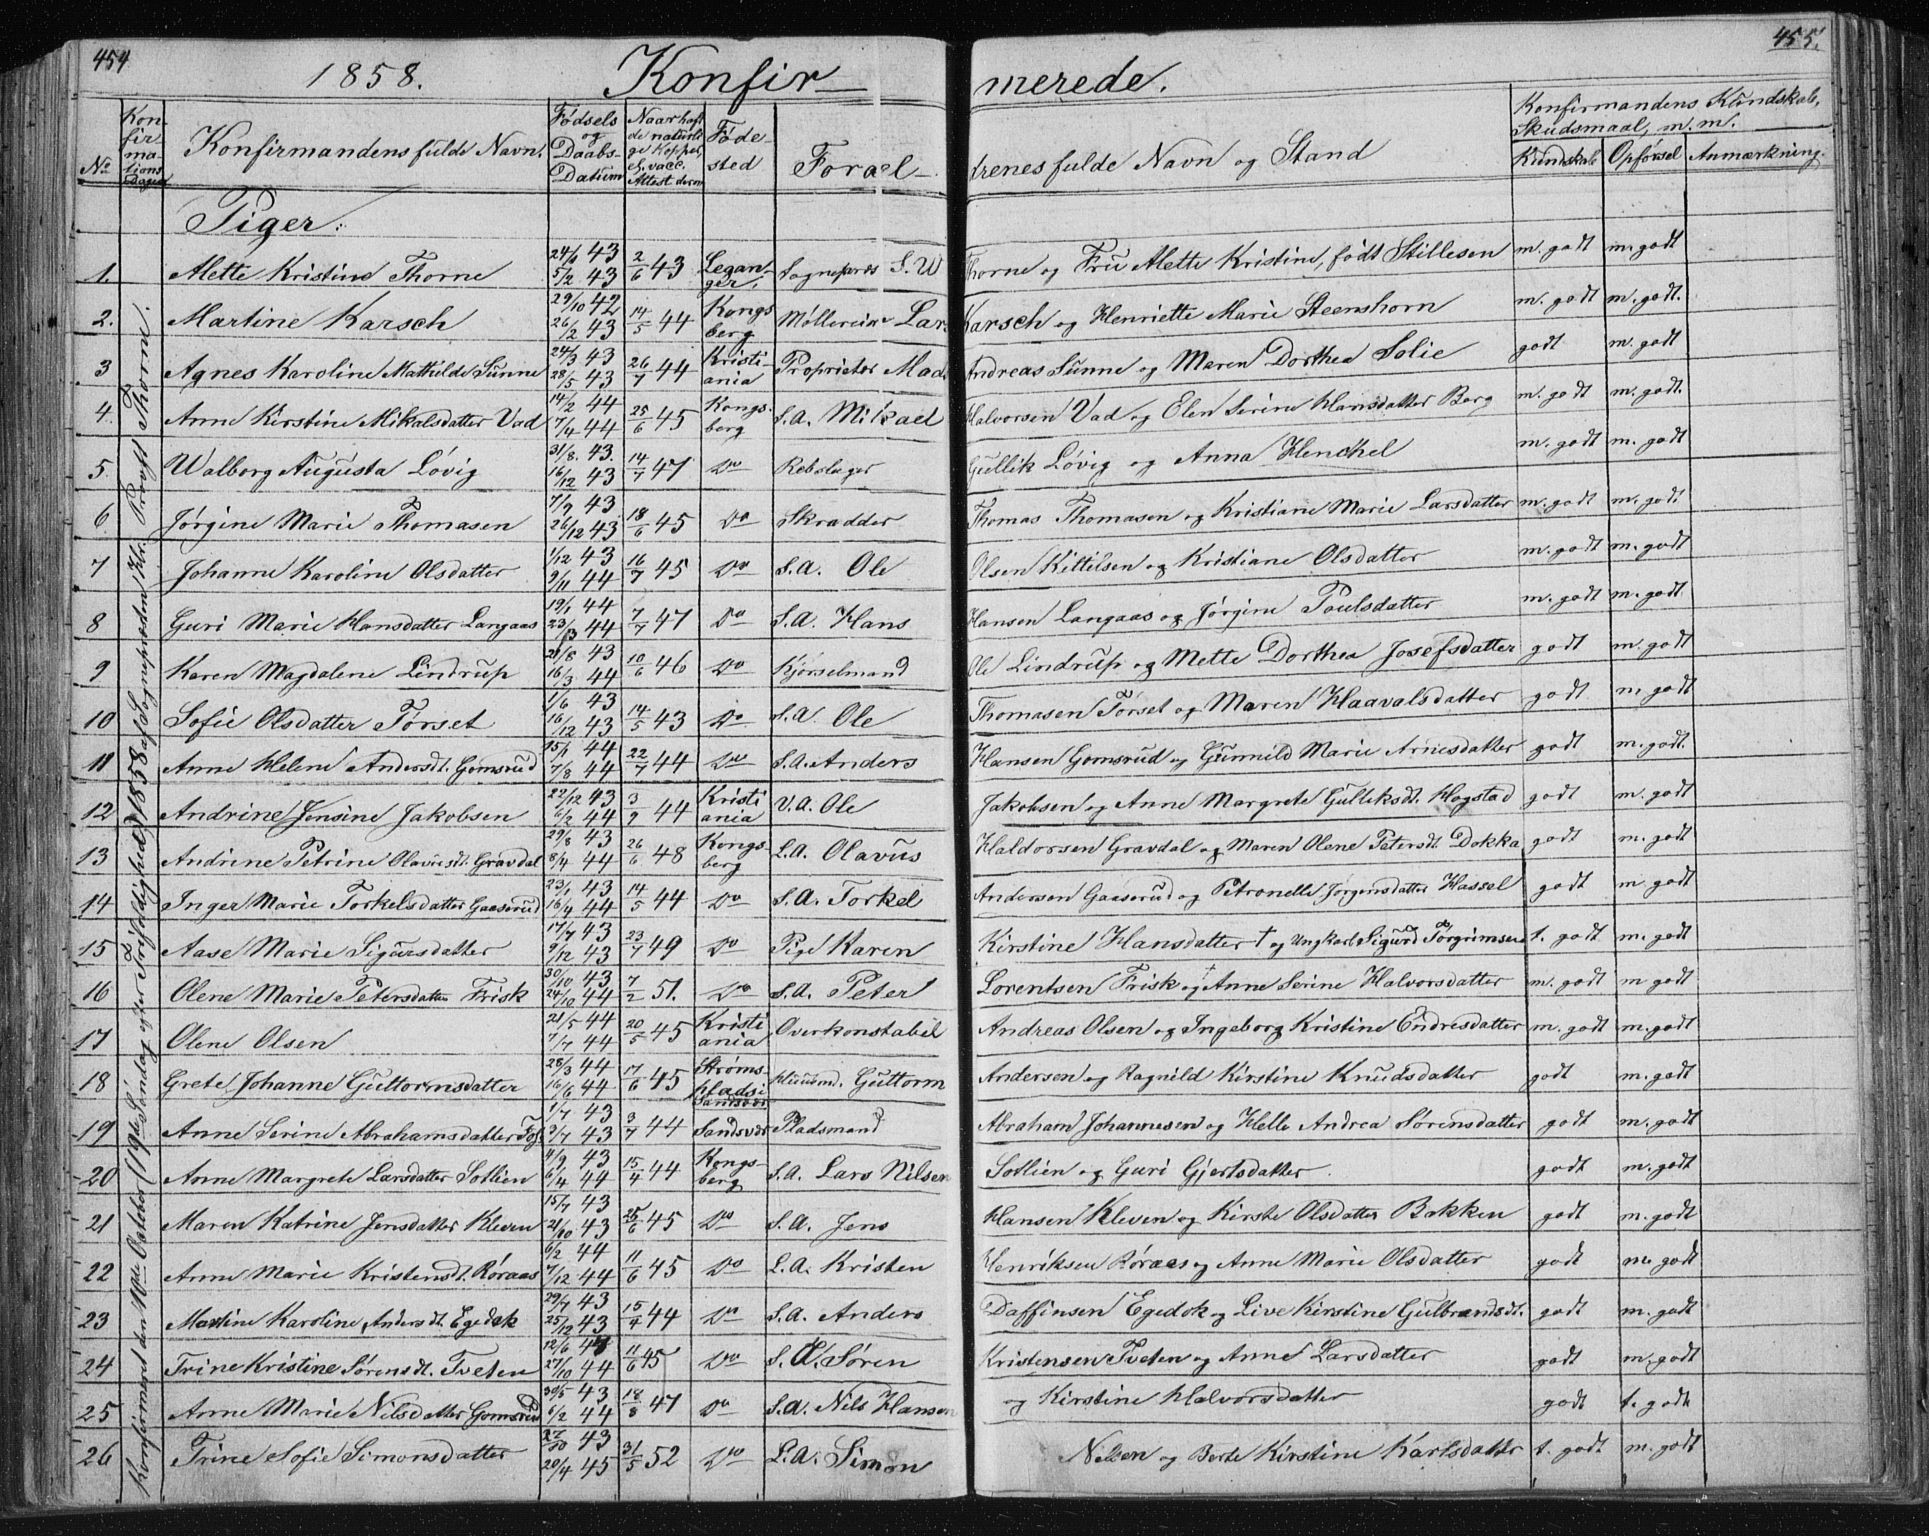 454
455.
1858. Konfirmerede.
No
Konfirmationsdagen
Konfirmandens fulde Navn.
Fødsels og Daabs-Datum
Naar haft de naturlige Kopper, el. vacc. Attest derom
Fødested
Forældrenes fulde Navn og Stand
Konfirmandens Kundskab, Skudsmaal, m. m.
Kundskab Opførsel Anmærkning.
Konfirmeret den 10de October (19de Søndag efter Trifoldighed) 1858 af Sognepræsten Hr. Provst Thorne.
Piger:
1. Alette Kristine Thorne 24/1 43 5/2 43 2/6 43 Leganger, Sognepræs S. W Thorne og Fru Alette Kristine, født Stillesen m. godt m. godt
2. Martine Karsch 29/10 42 26/2 43 14/5 44 Kongsberg Møllereier Lars Karsch og Henriette Marie Steenshorn m. godt m. godt.
3 Agnes Karoline Mathilde Sunne 24/3 43 28/5 43 26/7 44 Kristiania Proprietær Mads Andreas Sunne og Maren Dorthea Solie godt m. godt
4. Anne Kirstine Mikalsdatter Vad 14/2 44 7/4 44 25/6 45 Kongsberg S.A. Mikael Halvorsen Vad og Elen Serine Hansdatter Berg m. godt m. godt.
5. Walborg Augusta Løvig 31/8. 43. 16/12 43 14/7 47 Do Rebslager Gullik Løvig og Anna Henckel m. godt m. godt
6 Jørgine Marie Thomasen 7/9 43 26/12 43 18/6 45 Do Skrædder Thomas Thomasen og Kristiane Marie Larsdatter m. godt m. godt
7 Johanne Karoline Olsdatter 1/12 43 9/11 44 16/7 45 Do S.A. Ole Olsen Kittilsen og Kristiane Olsdatter m. godt m. godt
8 Guri Marie Hansdatter Langaas 19/1 44 23/3 44 7/7 47 Do S.A. Hans Hansen Langaas og Jørgine Poulsdatter m. godt m. godt
9 Karen Magdalene Lindrup 21/8 43 16/3 44 10/6 46 Do Kjørselmand Ole Lindrup og Mette Dorthea Josefsdatter godt m. godt
10 Sofie Olsdatter Førset 1/6 43 16/12 43 14/5 43 Do S.A. Ole Thomasen Førset og Maren Haavalsdatter godt m godt
11 Anne Helene Andersdt. Gomsrud 15/1 44 7/8 44 22/7 44 Do S.A. Anders Hansen Gomsrud og Gunnild Marie Arnesdatter godt m. godt.
12 Andrine Jensine Jakobsen 22/12 43 6/2 44 3/9 44 Kristiania V.A. Ole Jakobsen og Anne Margrete Gulliksdt. Hogstad godt m. godt
13 Andrine Petrine Olavusdt. Gravdal 29/8 43 8/4 44 26/6 48 Kongsberg L.A. Olavus Haldorsen Gravdal og Maren Olene Petersdt. Dokka godt m. godt
14 Inger Marie Torkelsdatter Gaaserud 23/1 43 16/4 44 14/5 44 Do S.A. Torkel Andersen Gaaserud og Petronelle Jørgensdatter Hassel godt m godt
15 Aase Marie Sigursdatter 17/7 43 9/12 43 23/7 49 Do Pige Karen Kirstine Hansdatter † og Ungkarl Sigurd Torgrimsen t. godt m. godt
16 Olene Marie Petersdatter Frisk 30/10 43 24/10 44 7/2 51. Do S.A. Peter Lorentsen Frisk og † Anne Serine Halvorsdatter m. godt m godt
17 Olene Olsen 21/5 44 7/7 44 20/5 45 Kristiania Overkonstabel Andreas Olsen og Ingeborg Kristine Endresdatter m. godt m. godt
18 Grete Johanne Guttormsdatter 28/3 44 16/6 44 17/6 45 Strømspladsi Sandsvær Guttorm Andersen og Ragnild Kirstine Knudsdatter godt m. godt
19 Anne Serine Abrahamsdatter Fos 1/7 43 2/7 43 3/7 44 Sandsvær Pladsmand Abraham Johannesen og Helle Andrea Sørensdatter godt m. godt
20 Anne Margrete Larsdatter Sotlien 4/9 43 6/4 44 15/4 44 Kongsberg S.A. Lars Nilsen Sotlien og Guri Gjertsdatter. godt m. godt
21 Maren Katrine Jensdatter Kleven 15/7 43 21/10 43 25/6 45 Do S.A. Jens Hansen Kleven og Kirsti Olsdatter Bakken godt m. godt
22 Anne Marie Kristensdt. Røraas 6/2 44 7/12 44 11/6 45 Do L.A. Kristen Henriksen Røraas og Anne Marie Olsdatter godt m. godt
23 Martine Karoline Andersdt. Egedok 29/7 43 25/12 43 15/4 44 Do S.A. Anders Daffinsen Egedok og Live Kirstine Gulbrandsdt. godt m. godt
24 Trine Kristine Sørensdt. Tveten 12/6 43 27/10 44 11/6 45 Do S. A. Søren Kristensen Tveten og Anne Larsdatter godt m. godt
25 Anne Marie Nilsdatter Gomsrud 30/5 43 6/2 44 18/8 47 Do S.A. Nils Hansen og Kirstine Halvorsdatter godt t. godt
26 Trine Sofie Simonsdatter 27/10 43 20/4 45 31/5 52 Do L.A. Simon Nilsen og Berte Kirstine Karlsdatter t. godt m. godt